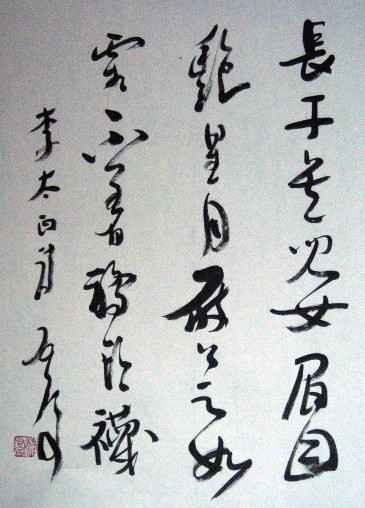 長干吳兒女眉目
艷星月屐上足如
霜不著鴉頭襪
李太白詩